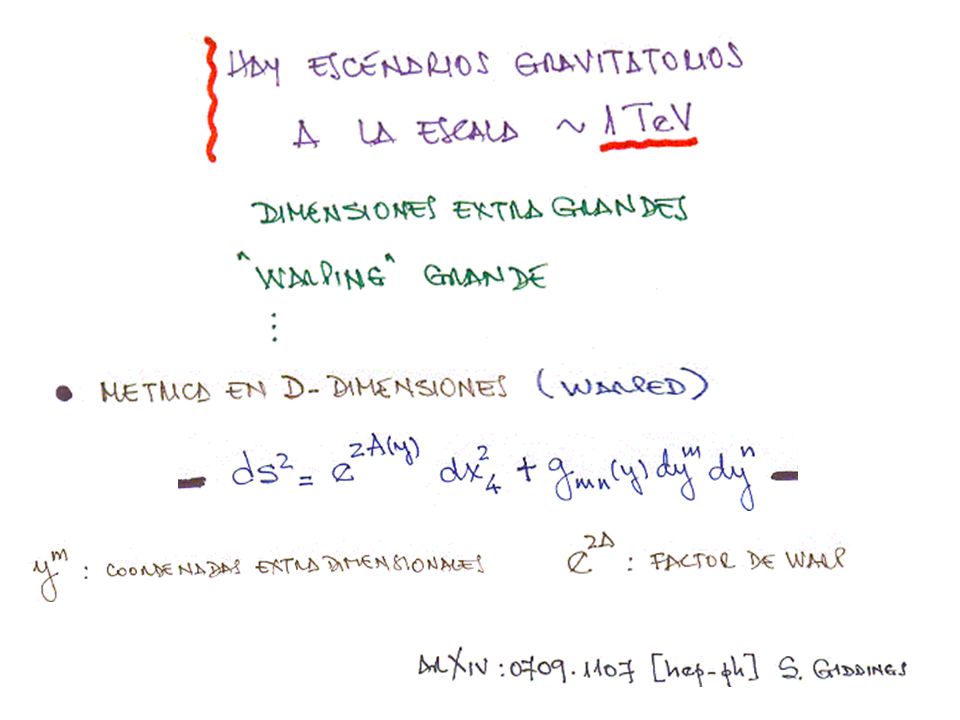 HAY ESCENARIOS GRAVITATORIOS
A LA ESCALA ~ 1 TeV
DIMENSIONES EXTRA GRANDES
"WARPING" GRANDE
⋮
• METRICA EN D-DIMENSIONES (WARPED)
- ds² = e^{2A(y)} dx₄² + g_{mn}(y) dy^m dy^n -
y^m : COORDENADAS EXTRADIMENSIONALES e^{2A} : FACTOR DE WARP
ArXiv:0709.1107 [hep-ph] S. GIDDINGS